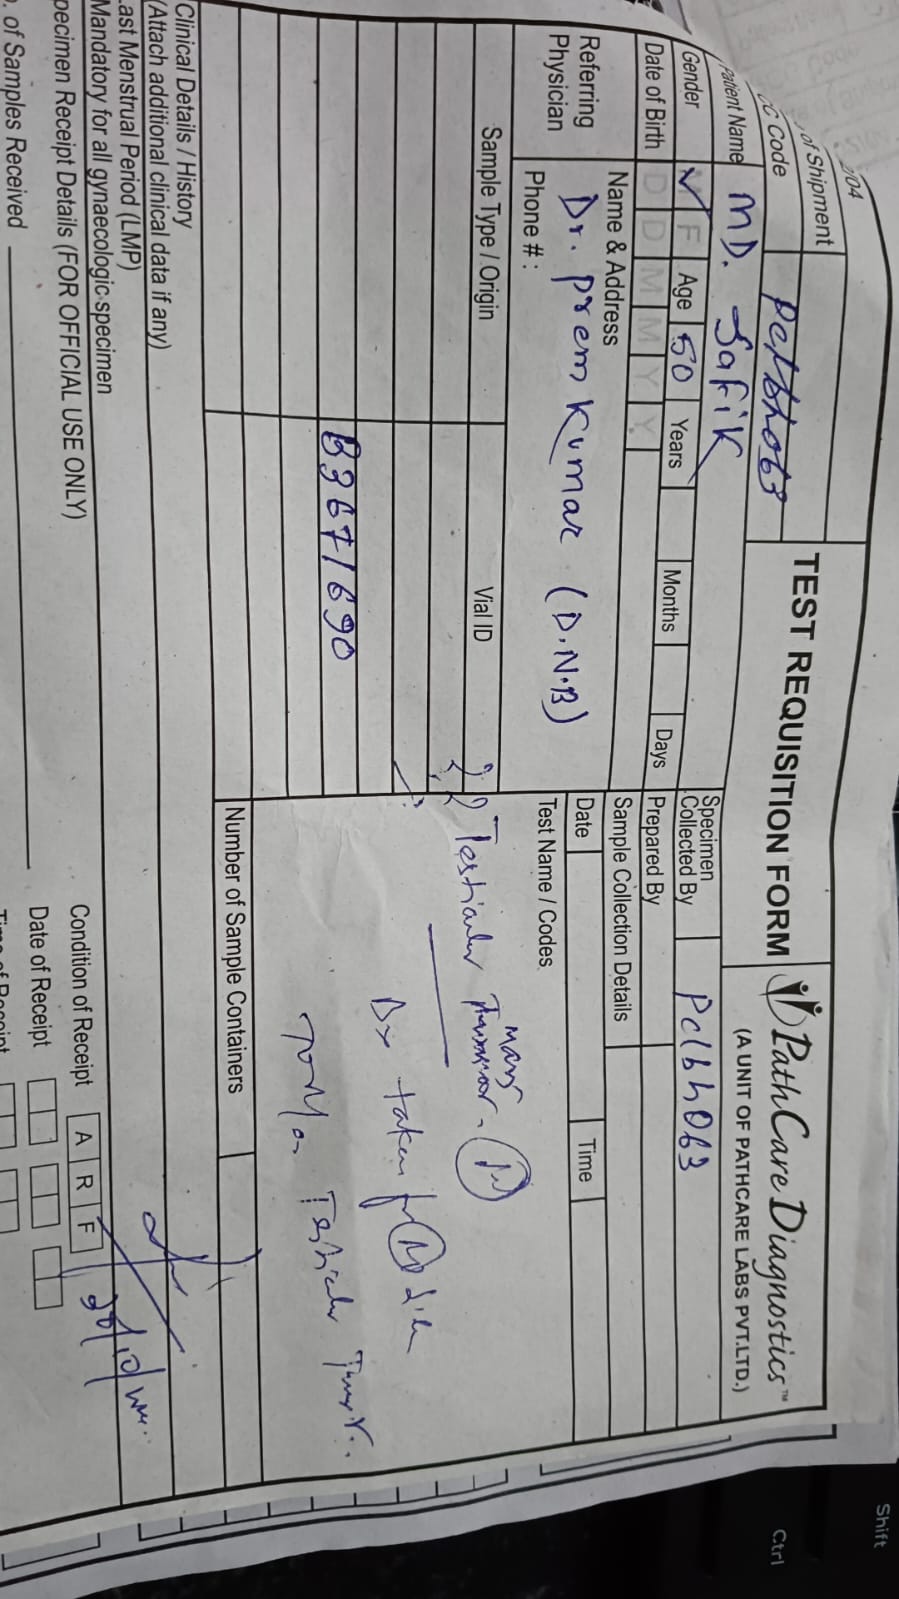 2/04
of Shipment
CC Code Pclbh063
TEST REQUISITION FORM
PathCare Diagnostics™
(A UNIT OF PATHCARE LABS PVT.LTD.)
Patient Name MD. Safik
Gender F Age 50 Years Months Days
Specimen Collected By Pclbh063
Date of Birth D D M M Y Y
Prepared By
Sample Collection Details
Referring Physician
Name & Address
Dr. prem Kumar (D.N.B)
Phone # :
Date Time
Sample Type / Origin
Vial ID
Test Name / Codes
B3671690
Testicular mass
Bx taken
Testicular
Number of Sample Containers
Clinical Details / History
(Attach additional clinical data if any)
Last Menstrual Period (LMP)
Mandatory for all gynaecologic specimen
pecimen Receipt Details (FOR OFFICIAL USE ONLY)
. of Samples Received
Condition of Receipt A R F
Date of Receipt
Time of Receipt
Shift
Ctrl